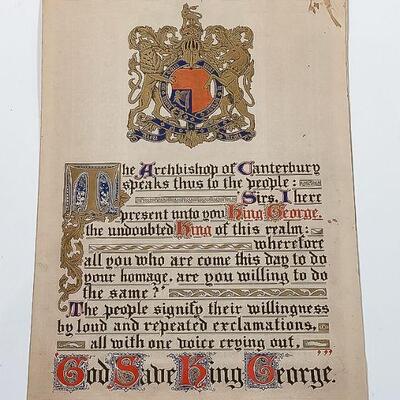 The Archbishop of Canterbury
speaks thus to the people:
Sirs, I here
present unto you King George,
the undoubted King of this realm:
wherefore
all you who are come this day to do
your homage, are you willing to do
the same?"
The people signify their willingness
by loud and repeated exclamations,
all with one voice crying out,
"God Save King George."